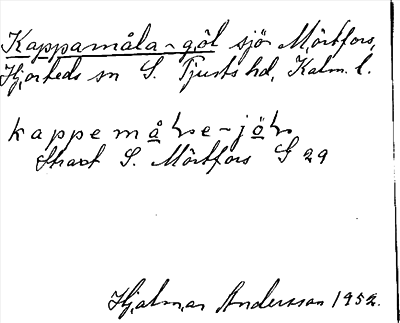 Kappamåla-göl sjö Mörtfors,
Hjorteds sn S. Tjusts hd, Kalm. l.
Strax S. Mörtfors G 29
Hjalmar Andersson 1952.